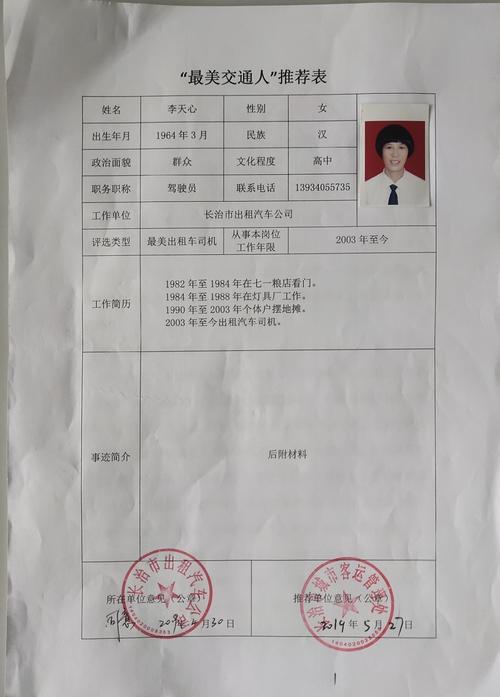 “最美交通人”推荐表
姓名 李天心 性别 女
出生年月 1964年3月 民族 汉
政治面貌 群众 文化程度 高中
职务职称 驾驶员 联系电话 13934055735
工作单位 长治市出租汽车公司
评选类型 最美出租车司机 从事本岗位工作年限 2003年至今
工作简历
1982年至1984年在七一粮店看门。
1984年至1988年在灯具厂工作。
1990年至2003年个体户摆地摊。
2003年至今出租汽车司机。
事迹简介 后附材料
长治市出租汽车公司
所在单位意见（公章） 推荐单位意见（公章）
月30日 2019年5月27日
城市客运管理处
1